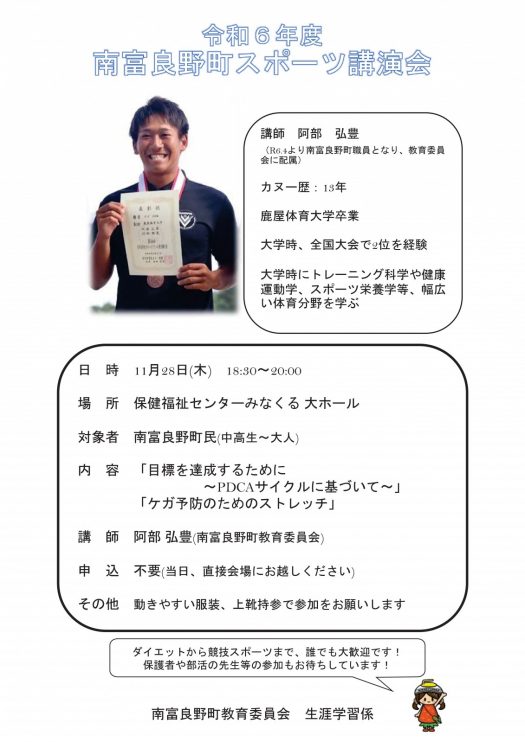 令和６年度
南富良野町スポーツ講演会
講師　阿部　弘豊
（R6.4より南富良野町職員となり、教育委員
会に配属）
カヌー歴：13年
鹿屋体育大学卒業
大学時、全国大会で2位を経験
大学時にトレーニング科学や健康
運動学、スポーツ栄養学等、幅広
い体育分野を学ぶ
表彰状
日　時　11月28日(木)　18:30～20:00
場　所　保健福祉センターみなくる 大ホール
対象者　南富良野町民(中高生～大人)
内　容　「目標を達成するために
～PDCAサイクルに基づいて～」
「ケガ予防のためのストレッチ」
講　師　阿部 弘豊(南富良野町教育委員会)
申　込　不要(当日、直接会場にお越しください)
その他　動きやすい服装、上靴持参で参加をお願いします
ダイエットから競技スポーツまで、誰でも大歓迎です！
保護者や部活の先生等の参加もお待ちしています！
南富良野町教育委員会　生涯学習係